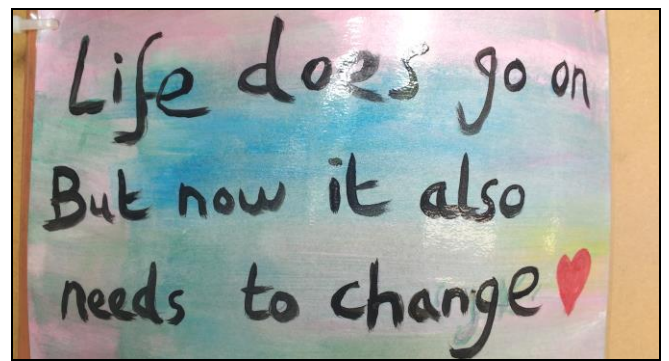 Life does go on
But now it also
needs to change